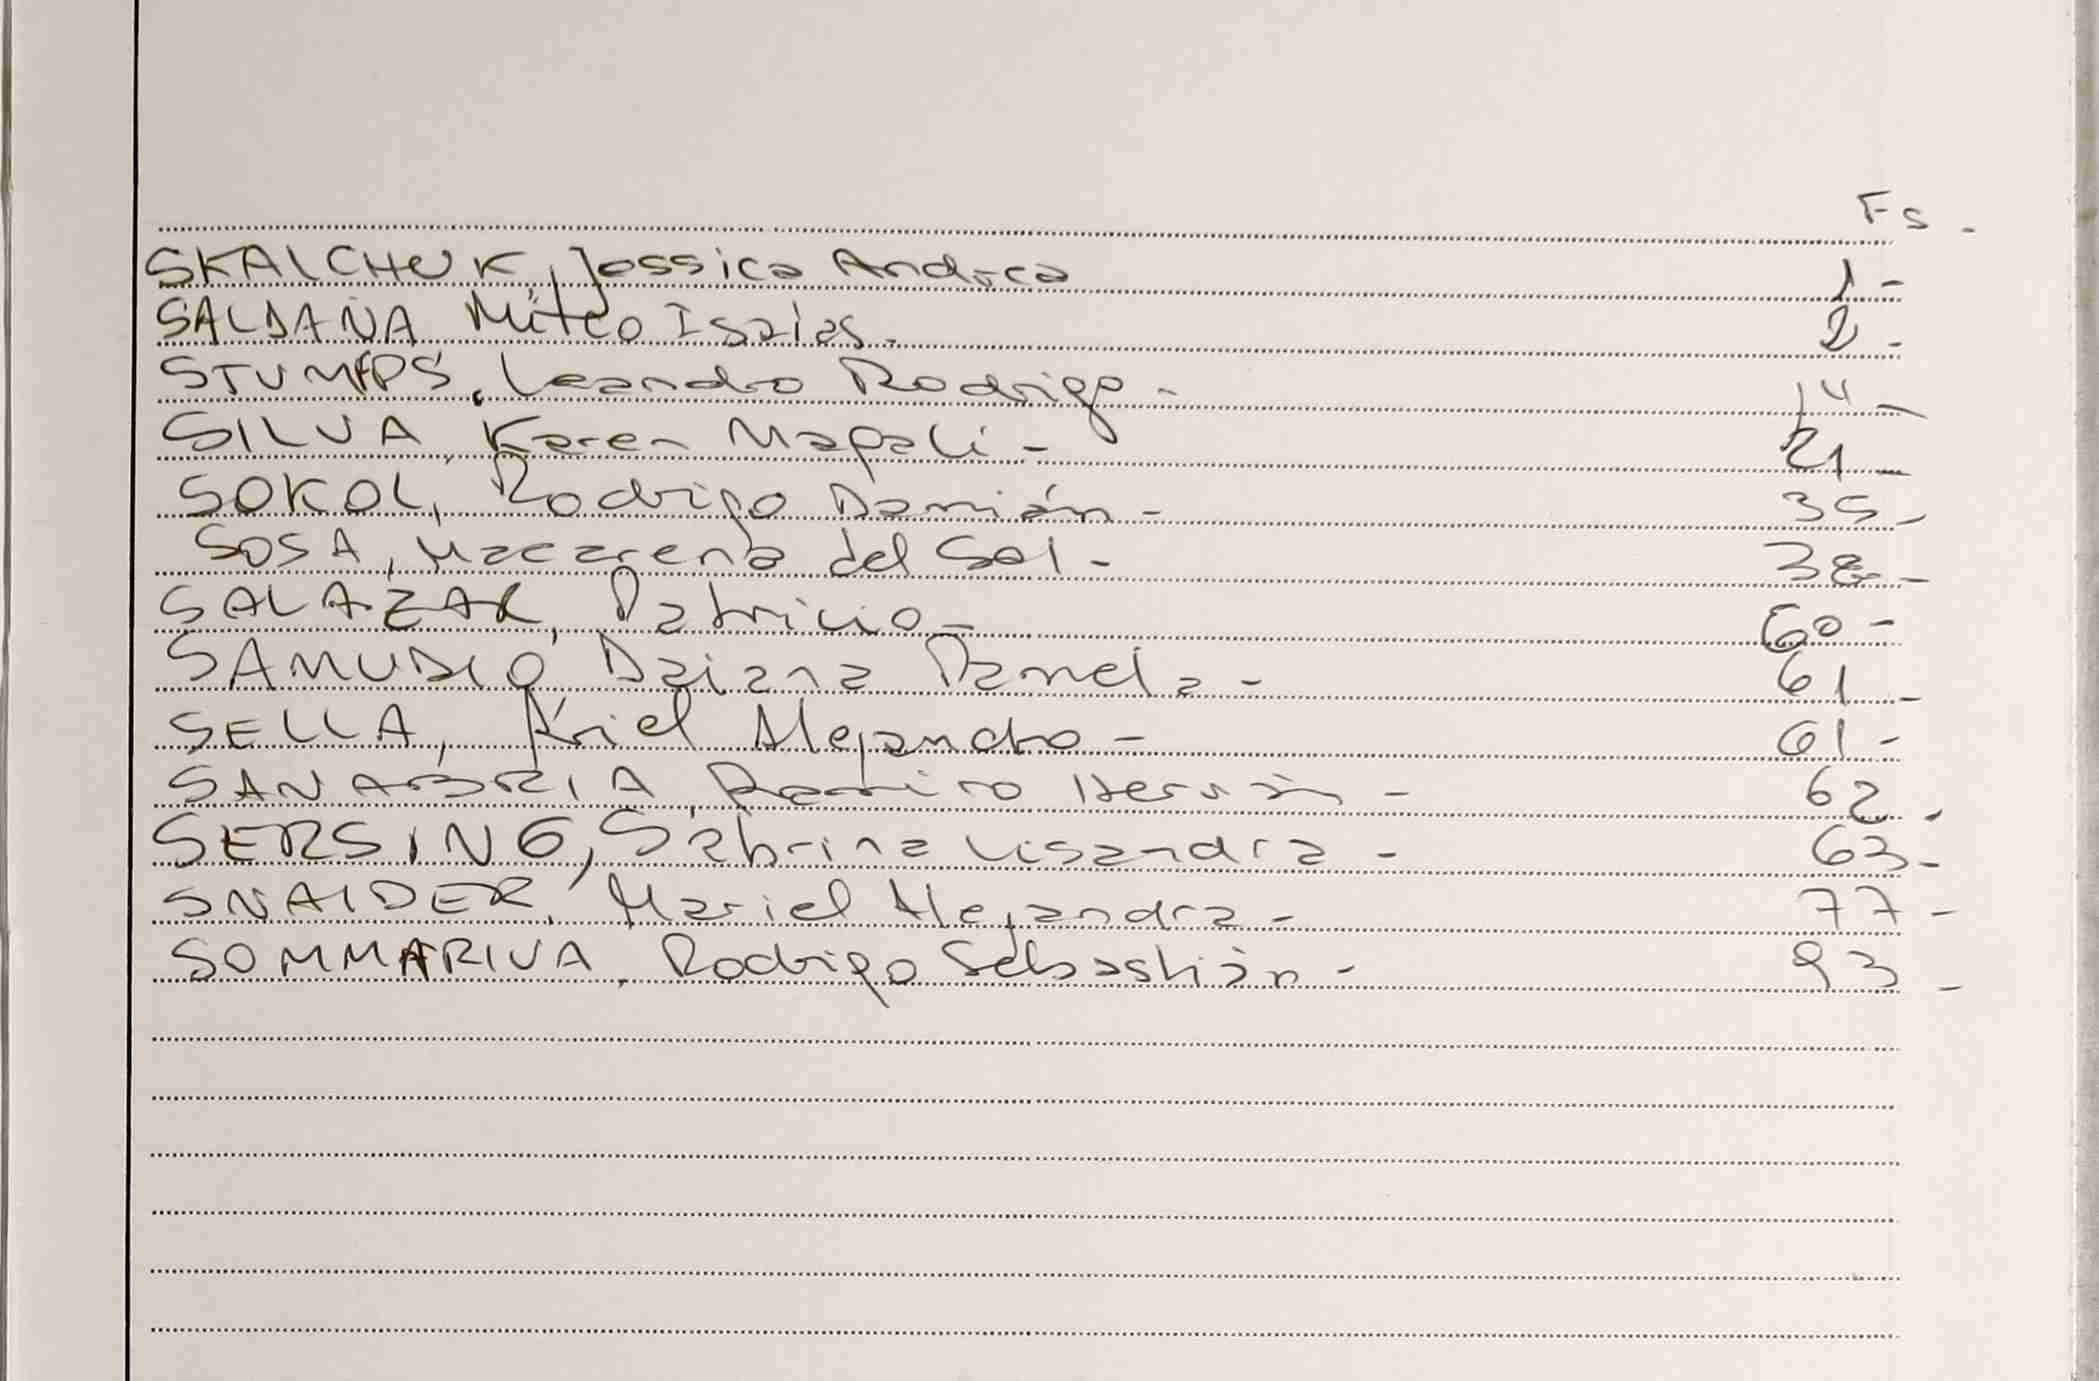 Fs.
SKALCHUK, Jessica Andrea 1-
SALDAÑA Miteo Isaias. 2-
STUMPFS, Leandro Rodrigo- 14-
SILVA, Karen Magali- 21-
SOKOL, Rodrigo Damián- 35-
SOSA, Macarena del Sol- 38-
SALAZAR, Patricio- 60-
SAMUDIO, Daiana Pamela- 61-
SELLA, Ariel Alejandro- 61-
SANABRIA, Ramiro Hernán- 62.
SERSING, Sabrina Lisandra- 63-
SNAIDER, Mariel Alejandra- 77-
SOMMARIVA, Rodrigo Sebastián- 93-